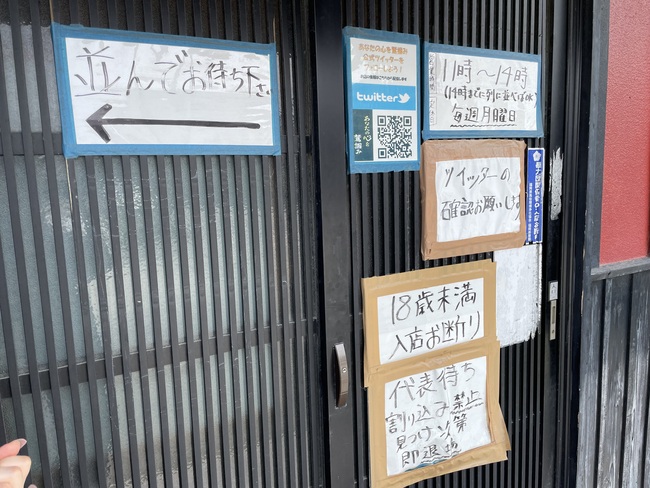 並んでお待ち下さい
あなたの心を鷲掴み
公式ツイッターを
フォローしよう!
twitter
あなたの心を
鷲掴み
11時〜14時
(14時までに列に並べばOK)
毎週月曜日
ツイッターの
確認お願いします
18歳未満
入店お断り
代表待ち
割り込み禁止
見つけ次第
即退場